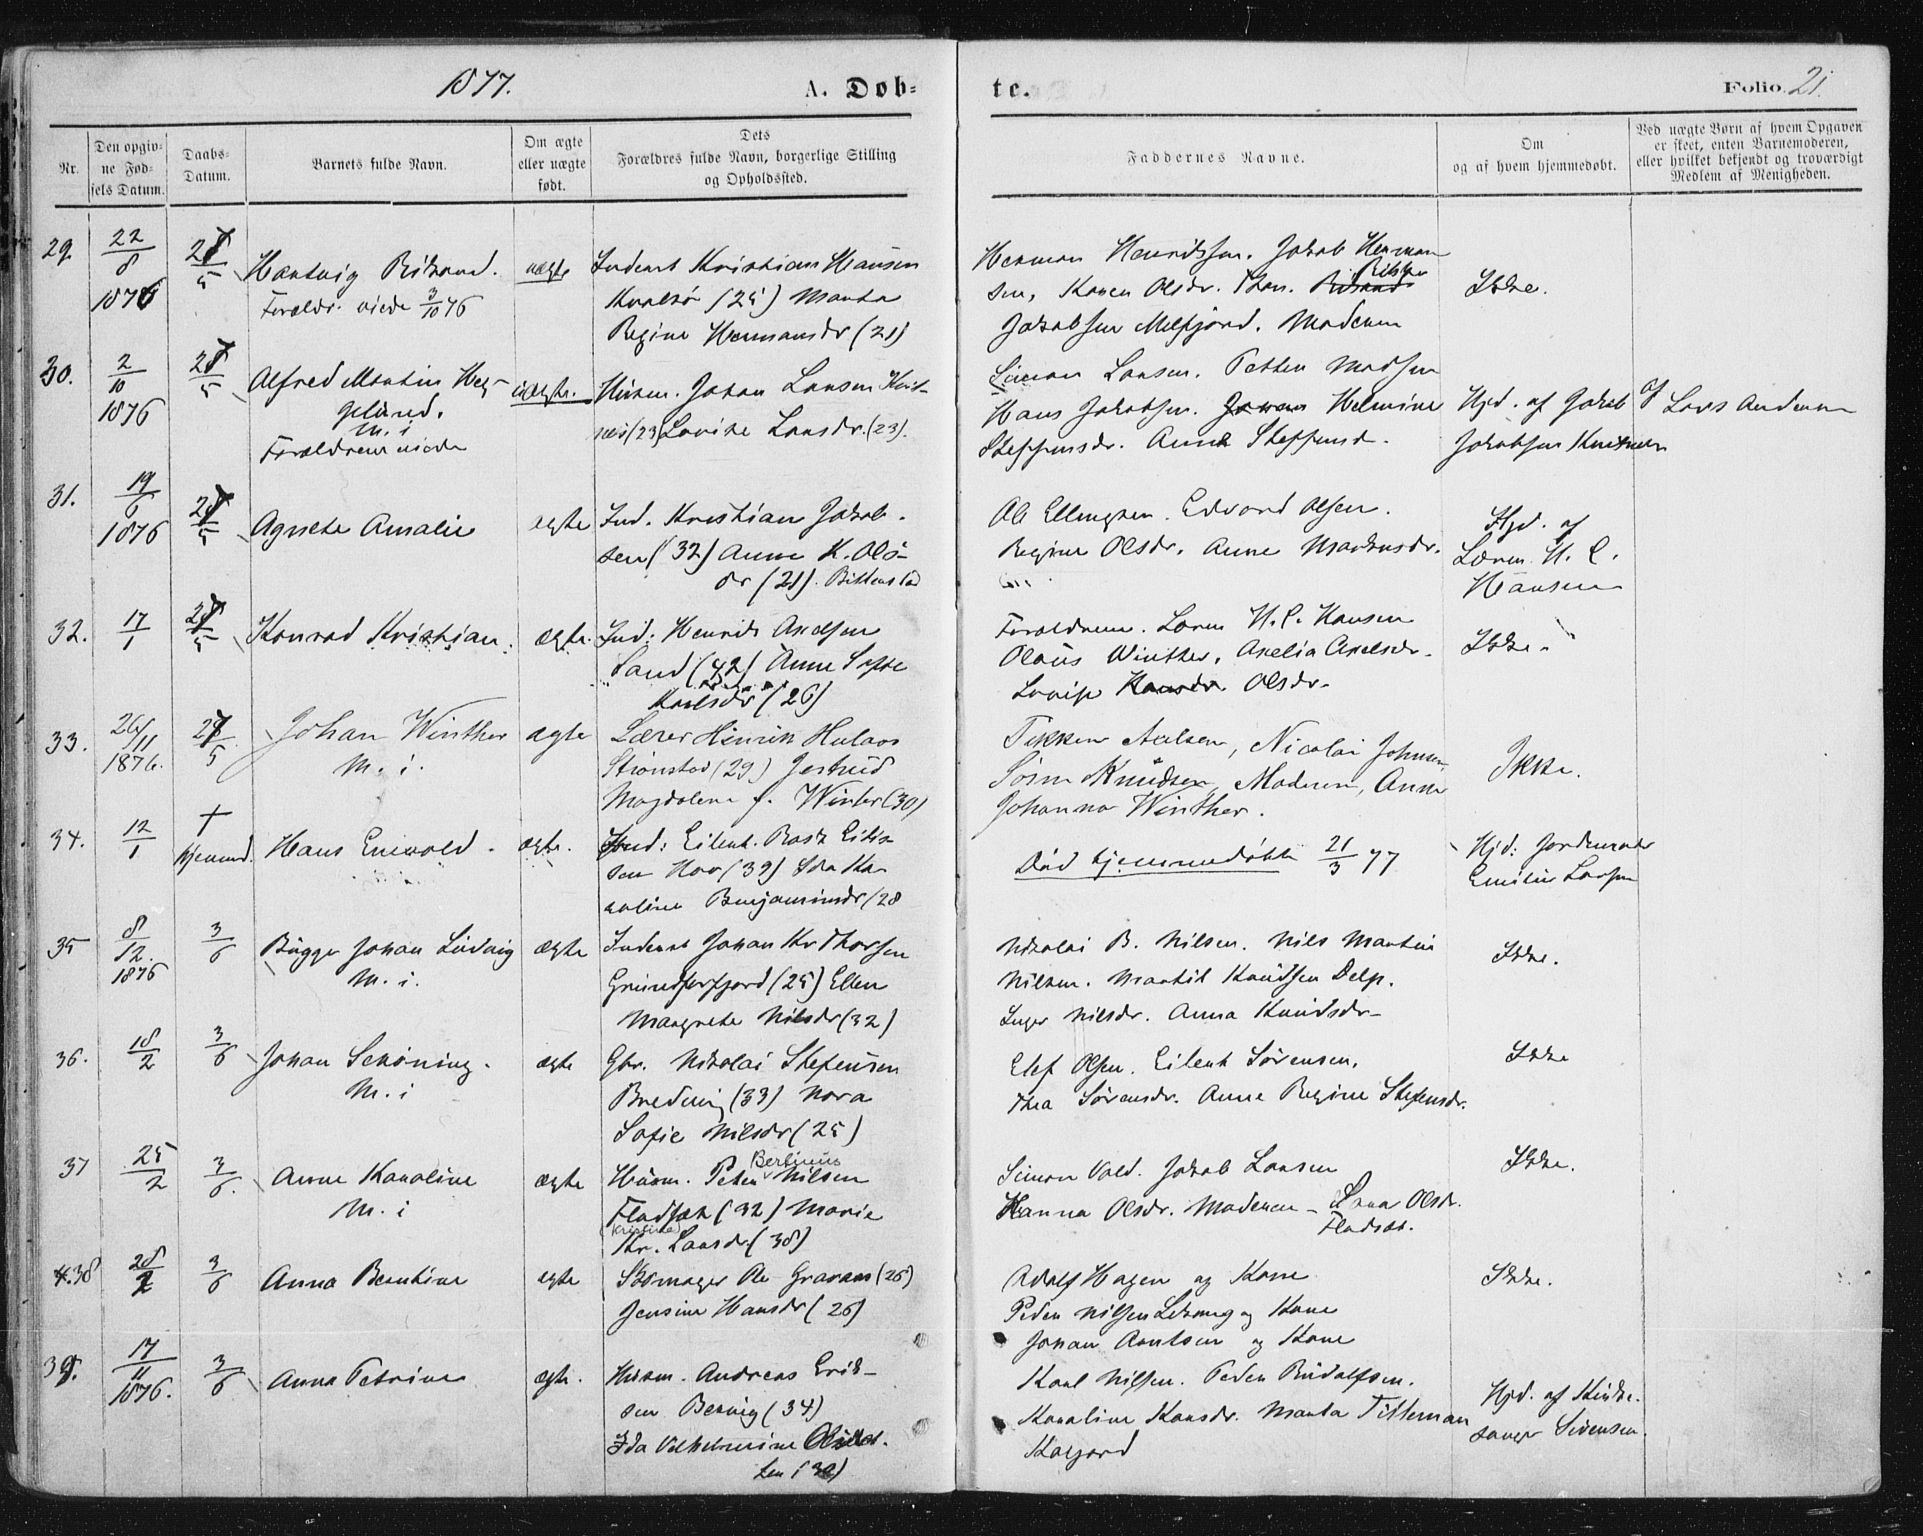 1877.
A. Døb-
te.
Folio 21.
Nr.
Den opgiv-
ne Fød-
sels Datum.
Daabs-
Datum.
Barnets fulde Navn.
Om ægte
eller uægte
født.
Dets
Forældres fulde Navn, borgerlige Stilling
og Opholdssted.
Faddernes Navne.
Om
og af hvem hjemmedøbt.
Ved uægte Børn af hvem Opgaven
er skeet, enten Barnemoderen,
eller hvilket bekjendt og troværdigt
Medlem af Menigheden.
29. 22/8 1876 27/5 Hartvig Rikard. uægte Inderst Kristian Hansen
Forældr. viede 3/10 76
Kvalsø (25) Marta
Regine Hermansdr (21)
Herman Henriksen. Jakob Herman
sen, Karen Olsdr. Thor.
Jakobsen Melfjord. Moderen
Ikke.
30. 2/10 1876 27/5 Alfred Martin Hei- uægte. Husm. Johan Larsen
gelund.
M. i
Forældrene viede
(23) Lovise Larsdr. (23).
Simon Larsen. Petter Madsen
Hans Jakobsen. Helmine
Steffensdr. Anna Steffensd.
Hjd. af Jakob
Jakobsen
af Lars Andersen
31. 19/6 1876 27/5 Agnete Amalie ægte Ind. Kristian Jakob-
sen (32) Anne K. Ols-
dr (21).
Ole Ellingsen. Edvard Olsen.
Regine Olsdr. Anne Markusdr.
Hjd. af
Læren H. C.
Hansen
32. 17/1 27/5 Konrad Kristian. ægte. Ind: Henrik Axelsen
Sand (42) Anne Sofie
Karlsdr (26)
Forældrene. Læren H. C. Hansen
Olaus Winther, Axelia Axelsdr.
Lovise Olsdr.
Ikke.
33. 26/11 1876. 27/5 Johan Winther ægte Lærer Hinrik Hulaas
M. i.
Strønstad (29) Gertrud
Magdalena f. Winter (30)
Axelsen, Nicolai Johnsen,
Søren Knudsen, Moderen, Anna
Johanna Winther.
Ikke.
34. 12/1 † hjemmd. Hans Enevold. ægte. Ind: Eilert Rask Eilts-
sen Hov (39) Ida Ka-
roline Benjaminsdr (28
Død hjemmedøbt 21/3 77
Hjd: Jordmoder
Emilie Larsen
35 8/12. 1876 3/6 Bugge Johan Ludvig ægte Inderst Johan Kr Thorsen
M. i.
Grundforfjord (25) Ellen
Margrete Nilsdr (32)
Nikolai B. Nilsen. Nils Martin
Nilsen. Martil Knudsen Delp.
Inger Nilsdr. Anna Knudsdr
Ikke.
36. 18/2 3/6 Johan Schøning. ægte Gbr. Nikolai Stefensen
M. i
Breduvig (33) Nora
Sofie Nilsdr (25)
Elef Olsen. Eilert Sørensen.
Thea Sørensdr. Anne Regine Stefensdr.
Ikke
37 25/2 3/6. Anne Karoline ægte Husm. Peder Berlinius Nilsen
M. i
Fladsæt (32) Marie
(Kristine)
Kr. Larsdr (38)
Simon Vold. Jakob Larsen
Hanna Olsdr. Moderen - Lava Olsdr.
Fladsæt.
Ikke.
38 28/2 3/6 Anna Berntine ægte Skomager Ole Gravaas (26)
Jensine Hansdr (26)
Adolf Hagen og Kone
Peder Nilsen og Kone
Johan Arntsen og Kone
Ikke.
39. 17/11 1876. 3/6 Anna Petrine ægte. Husm. Andreas Erik-
sen Bervig (34)
Ida Vilhelmine
Karl Nilsen. Peder Rudolfsen.
Karoline Hansdr. Marta Tilleman
Kalfjord
Hjd. af Kirke-
sanger Sivensen.